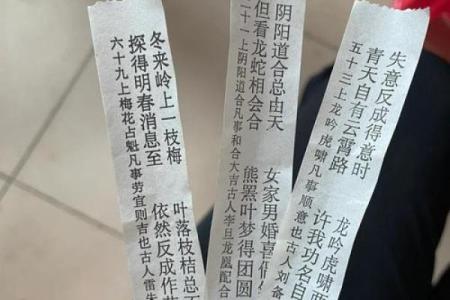 冬来岭上一枝梅 叶落枝枯总
探得明春消息至 依然反成作
六十九上梅花占魁凡事劳宜则吉也古人雷
阴阳道合总由天 女家男婚喜
但看龙蛇相会合 熊罴叶梦得团圆
二十一上阴阳道合凡事和合大吉古人李旦龙凤配合
失意反成得意时 龙吟虎啸
青天自有云霄路 许我功名自
五十三上龙吟虎啸凡事顺意也古人刘备